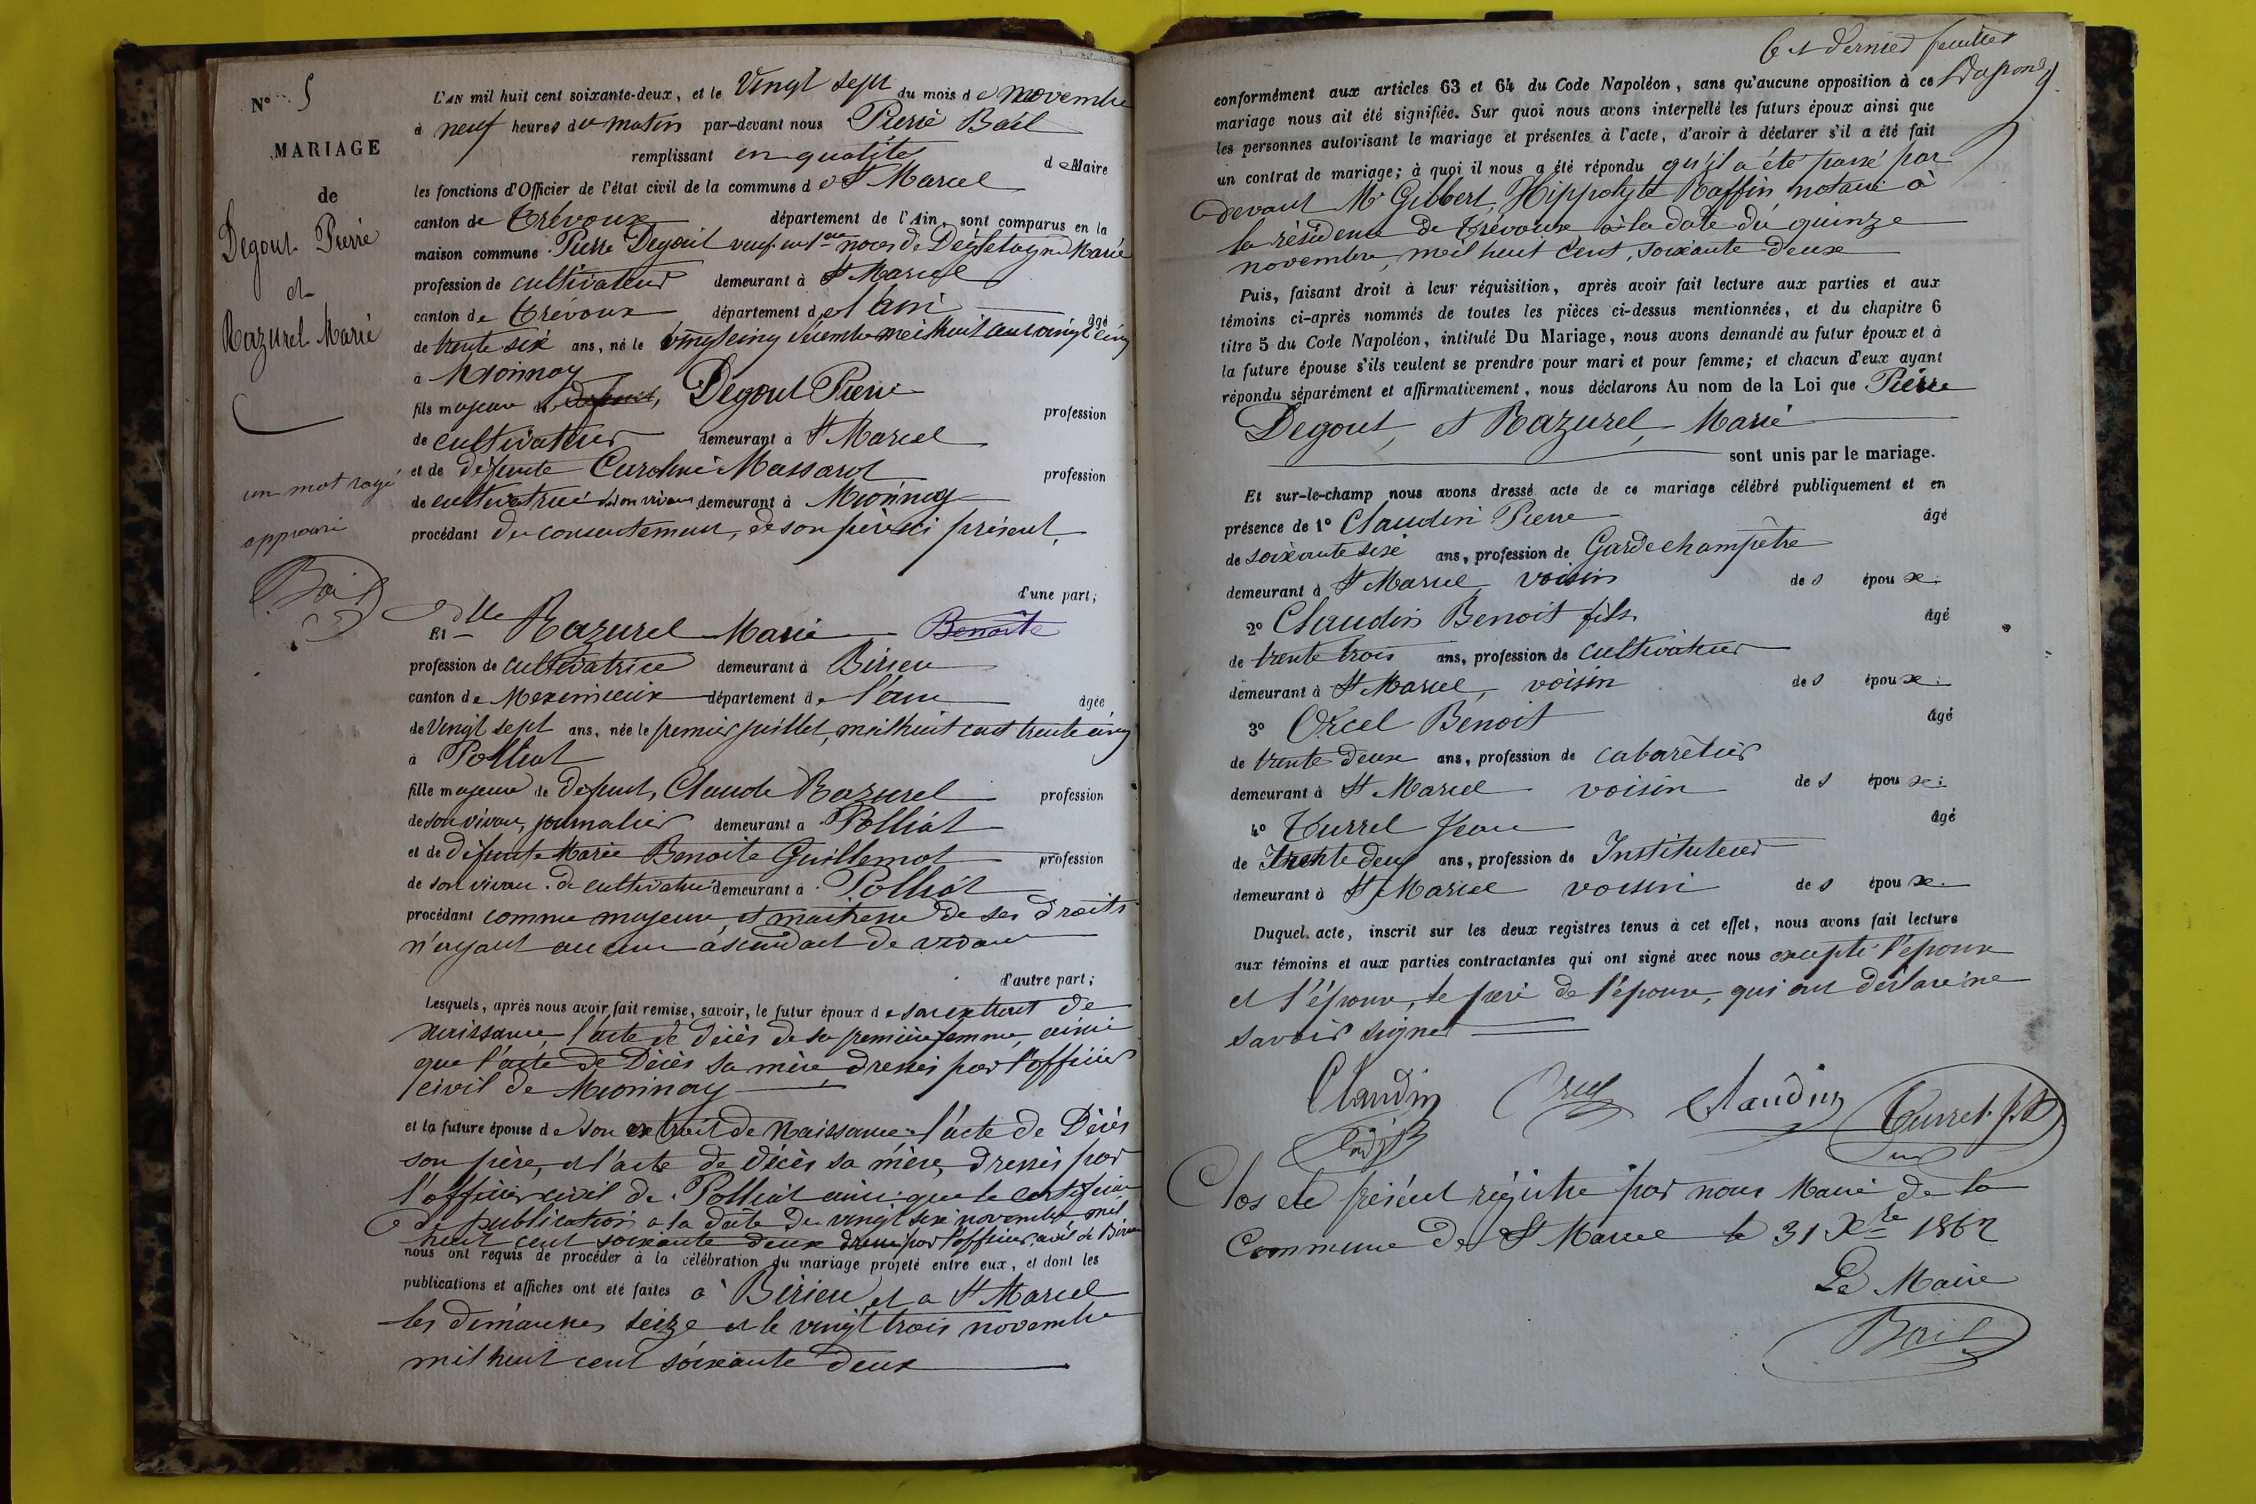 N° 5
MARIAGE
de
Degout Pierre
et
Razurel Marie
un mot rayé
approuvé
Bail
L'AN mil huit cent soixante-deux, et le Vingt sept du mois de novembre
à neuf heures du matin par-devant nous Pierre Bail
remplissant en qualité de Maire
les fonctions d'Officier de l'état civil de la commune de St Marcel
canton de Trévoux département de l'Ain, sont comparus en la
maison commune Pierre Degout veuf en 1ere noces de Marie
profession de cultivateur demeurant à St Marcel
canton de Trévoux département de l'ain âgé
de trente six ans, né le vingt cinq décembre mil huit cent vingt cinq
à Mionnay
fils majeur de defunt, Degout Pierre profession
de cultivateur demeurant à St Marcel
et de défunte Caroline Massarot profession
de cultivatrice de son vivant demeurant à Mionnay
procédant du consentement, de son père ici présent,
d'une part;
Et dlle Razurel Marie Benoite
profession de cultivatrice demeurant à Birieu
canton de Meximieux département de l'ain âgée
de Vingt sept ans, née le premier juillet, mil huit cent trente cinq
à Polliat
fille majeure de defunt, Claude Razurel profession
de son vivant, journalier demeurant à Polliat
et de défunte Marie Benoite Guillemot profession
de son vivant de cultivatrice demeurant à Polliat
procédant comme majeure et maitresse de ses droits
n'ayant aucun ascendant de vivant
d'autre part;
Lesquels, après nous avoir fait remise, savoir, le futur époux de son extrait de
naissance, l'acte de décès de sa première femme, ainsi
que l'acte de Décès sa mère, dressés par l'officier
civil de Mionnay
et la future épouse de son extrait de Naissance, l'acte de Décès
son père, et l'acte de décès sa mère, dressés par
l'officier civil de Polliat ainsi que le certificat
de publication a la date du vingt six novembre mil
huit cent soixante deux dressé par l'officier civil de Birieu
nous ont requis de procéder à la célébration du mariage projeté entre eux, et dont les
publications et affiches ont été faites à Birieu et a St Marcel
les dimanches seize et le vingt trois novembre
mil huit cent soixante deux
6 et dernier feuillet
conformément aux articles 63 et 64 du Code Napoléon, sans qu'aucune opposition à ce
mariage nous ait été signifiée. Sur quoi nous avons interpellé les futurs époux ainsi que
les personnes autorisant le mariage et présentes à l'acte, d'avoir à déclarer s'il a été fait
un contrat de mariage; à quoi il nous a été répondu qu'il a été passé par
devant Mr Gilbert, Hippolyte Raffin notaire à
la résidence de Trévoux à la date du quinze
novembre, mil huit cent, soixante deux
Puis, faisant droit à leur réquisition, après avoir fait lecture aux parties et aux
témoins ci-après nommés de toutes les pièces ci-dessus mentionnées, et du chapitre 6
titre 5 du Code Napoléon, intitulé Du Mariage, nous avons demandé au futur époux et à
la future épouse s'ils veulent se prendre pour mari et pour femme; et chacun d'eux ayant
répondu séparément et affirmativement, nous déclarons Au nom de la Loi que Pierre
Degout, et Razurel, Marie
sont unis par le mariage.
Et sur-le-champ nous avons dressé acte de ce mariage célébré publiquement et en
présence de 1° Claudin Pierre âgé
de soixante sixe ans, profession de Garde champêtre
demeurant à St Marcel voisin des époux.
2° Claudin Benoit fils. âgé
de trente trois ans, profession de cultivateur
demeurant à St Marcel, voisin des époux.
3° Orcel Benoit âgé
de trente deux ans, profession de cabaretier
demeurant à St Marcel voisin des époux.
4° Turrel Jean âgé
de Trente deux ans, profession de Instituteur
demeurant à St Marcel voisin des époux.
Duquel acte, inscrit sur les deux registres tenus à cet effet, nous avons fait lecture
aux témoins et aux parties contractantes qui ont signé avec nous excepté l'époux
et l'épouse, le père de l'époux, qui ont déclaré ne
savoir signer
Claudin Orcel Claudin Turrel
Clos le présent régistre par nous Maire de la
Commune de St Marcel le 31 Xbre 1862
Le Maire
Bail